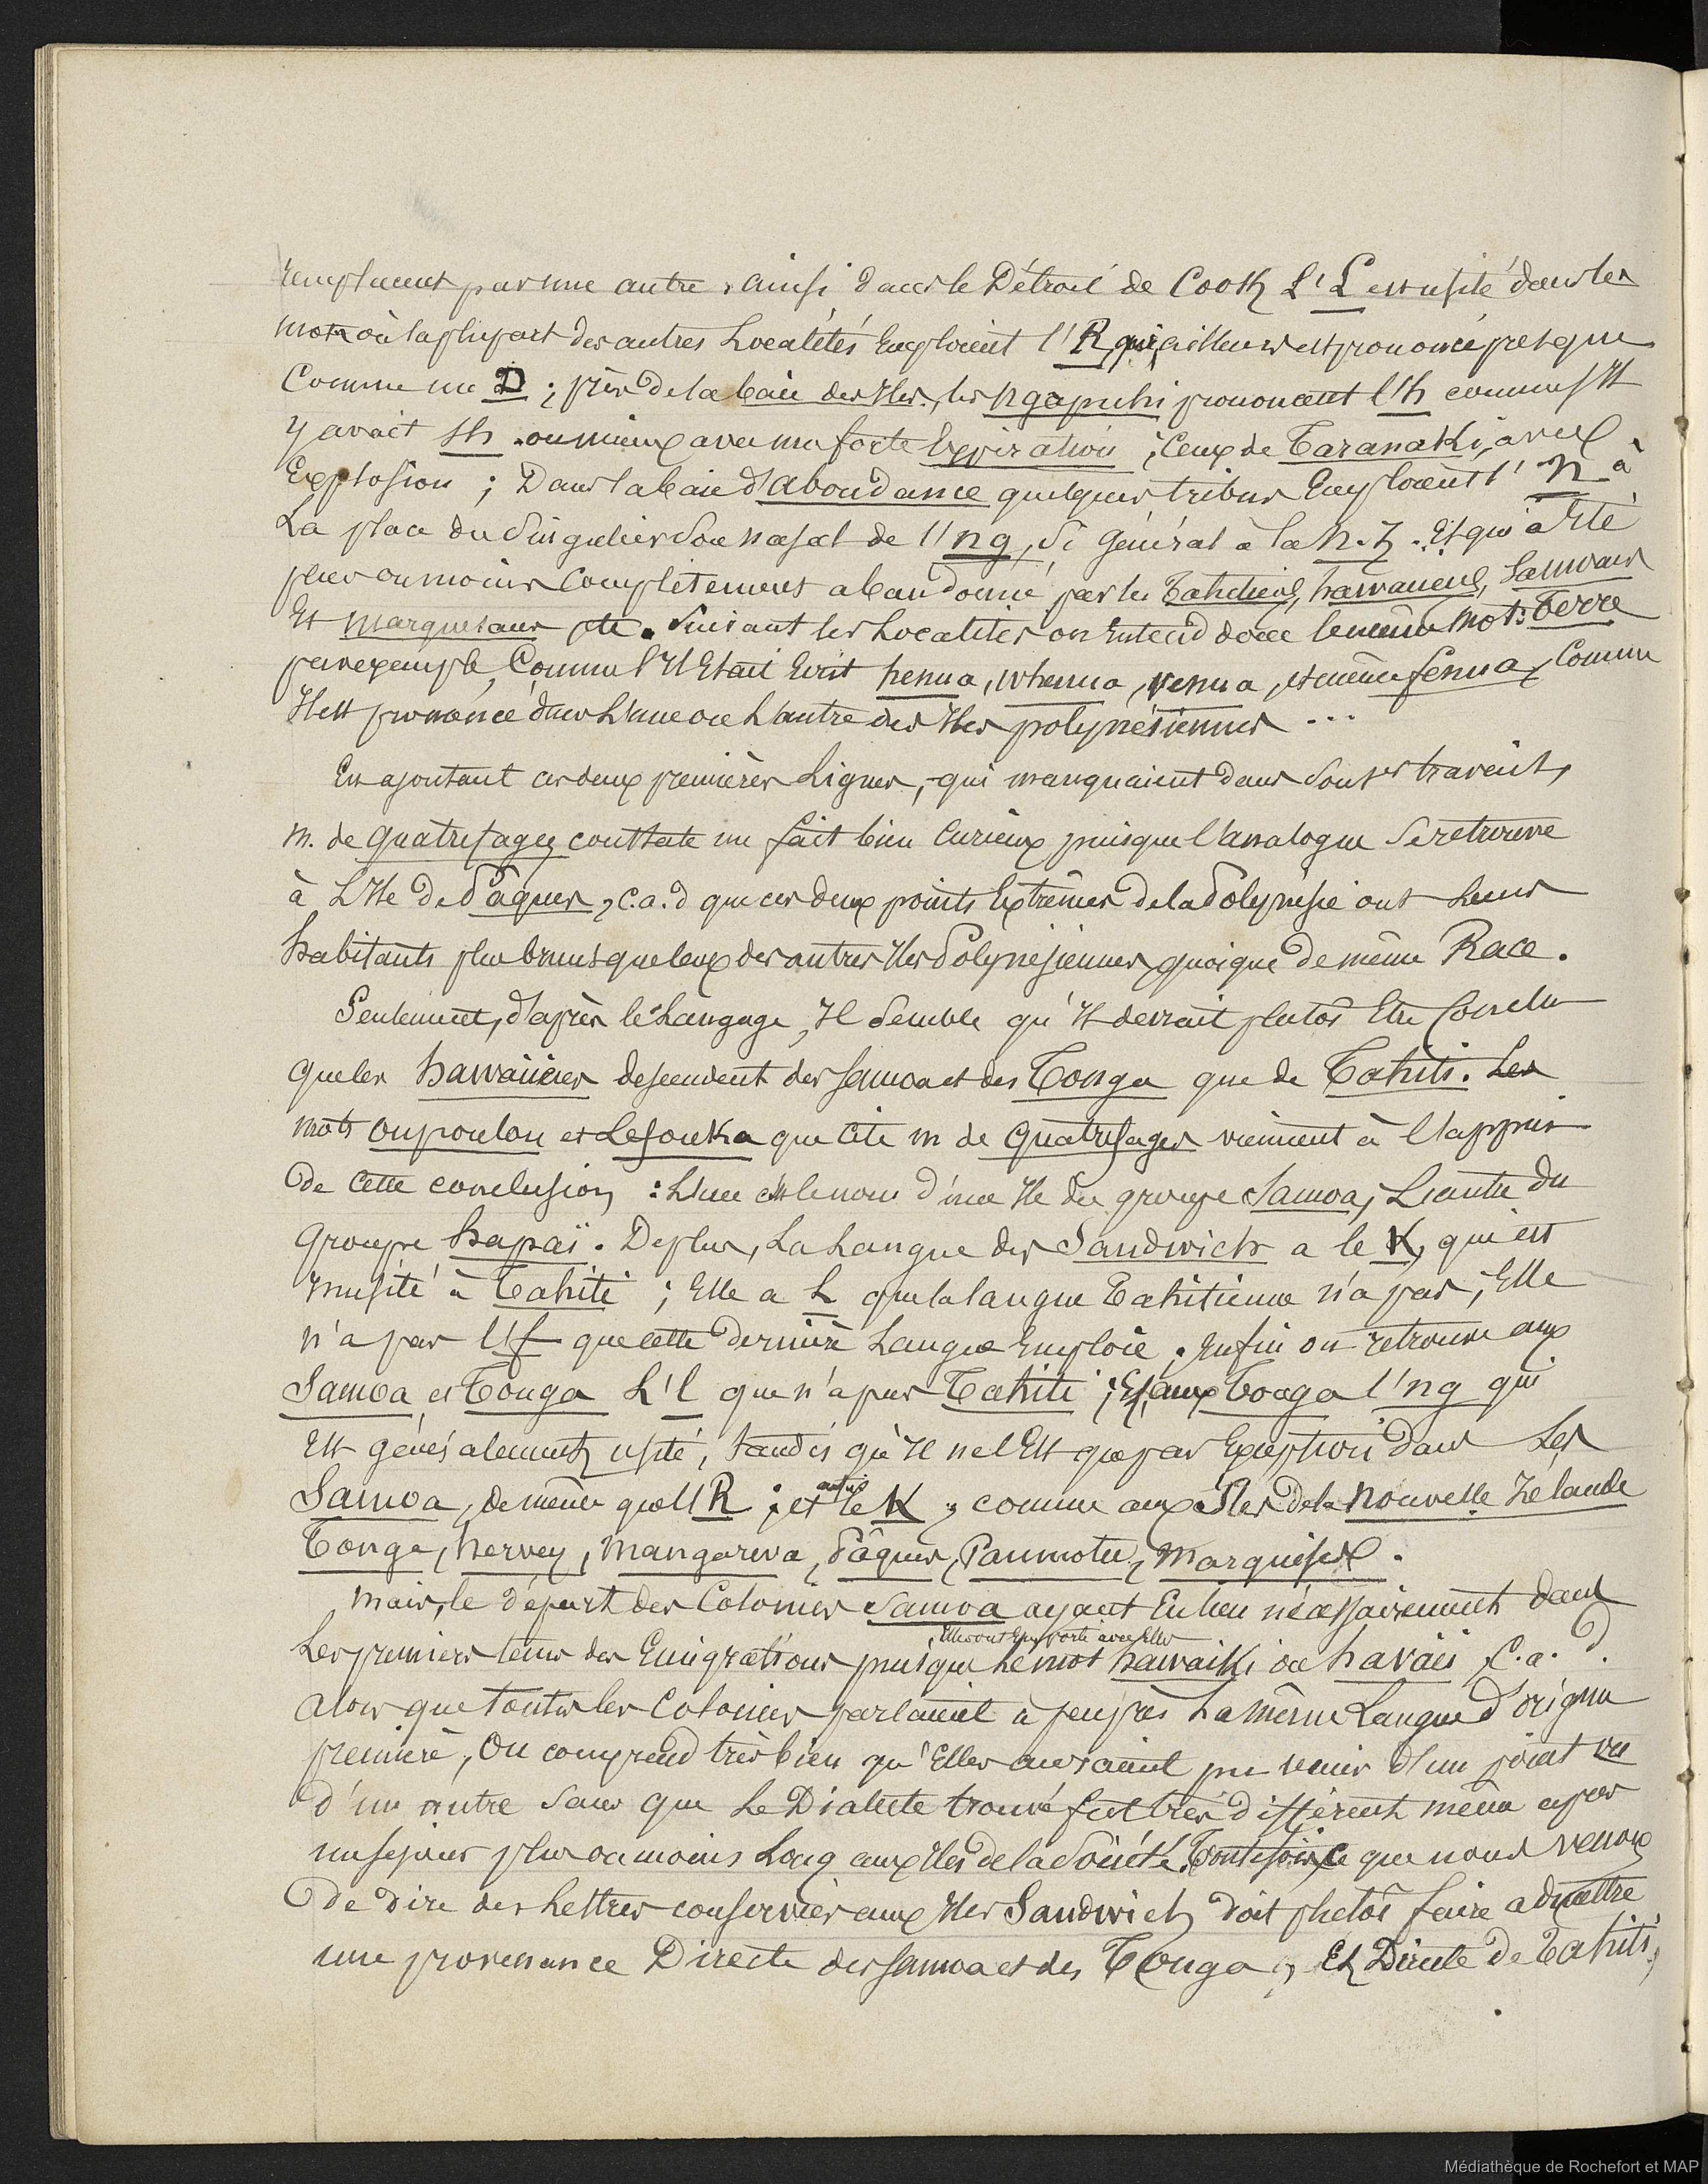 remplacent par une autre, ainsi dans le Détroit de Cook L'L est usité dans les
mots où la plupart des autres Localités Emploient l'R, qui ailleurs est prononcé presque
Comme un D ; près de la baie des Iles, les ngapuhi prononcent l'h comme s'Il
y avait sh. ou mieux avec une forte Expiration ; Ceux de Taranaki, avec
Explosion ; Dans la baie d'abondance quelques tribus Emploient l'n à
La place du Singulier Son nasal de l'ng, si général à la N. Z. Et qui a Eté
plus ou moins complètement abandonné par les Tahitiens, hawaiiens, Samoans
Et marquesans etc. Suivant les Localités on Entend donc le même mot : Terre
par exemple, Comme s'Il Etait Ecrit henua, whenua, venua, et même fenua, Comme
Il est prononcé dans L'une ou L'autre des Iles polynésiennes ...
En ajoutant ces deux premières Lignes, qui manquaient dans son 1er travail,
m. de quatrefages constate un fait bien Curieux puisque l'analogue se retrouve
à L'Ile de Pâques, c.a.d que ces deux points Extrêmes de la Polynésie ont Leurs
habitants plus bruns que ceux des autres Iles Polynésiennes quoique de même Race.
Seulement, d'après le Langage, Il Semble qu'Il devrait plutôt Etre Conclu
que les hawaiiens descendent des Samoa et des Tonga que de Tahiti. Les
mots oupoulou et Lefouka que cite m de Quatrefages viennent à l'appui
de cette conclusion : L'une est le nom d'une Ile du groupe Samoa, L'autre du
groupe hapaï. De plus, La Langue des Sandwich a le K, qui est
Inusité à Tahiti ; Elle a L que la langue Tahitienne n'a pas ; Elle
n'a pas l'f que cette dernière Langue Emploie. Enfin on retrouve aux
Samoa et Tonga L'l que n'a pas Tahiti ; Et aux Tonga l'ng qui
Est généralement usité, tandis qu'Il ne l'Est que par Exception dans Les
Samoa, de même que l'R ; et aussi le K, comme aux Iles de la Nouvelle Zelande
Tonga, hervey, Mangareva, Pâques, Paumotu, Marquises.
Mais, le départ des Colonies Samoa ayant Eu lieu nécessairement dans
Les premiers tems des Emigrations puisque Elles ont Emporté avec Elles Le mot hawaiki ou havaii, C.a.d.
alors que toutes les Colonies parlaient à peu près La même Langue d'origine
première, On comprend très bien qu'Elles auraient pu venir d'un point ou
d'un autre sans que Le Dialecte trouvé fut très différent même après
un séjour plus ou moins Long aux Iles de la Société. Toutefois, ce que nous venons
de dire des Lettres conservées aux Iles Sandwich doit plutôt faire admettre
une provenance Directe des Samoa et des Tonga, Et Directe de Tahiti,
Médiathèque de Rochefort et MAP